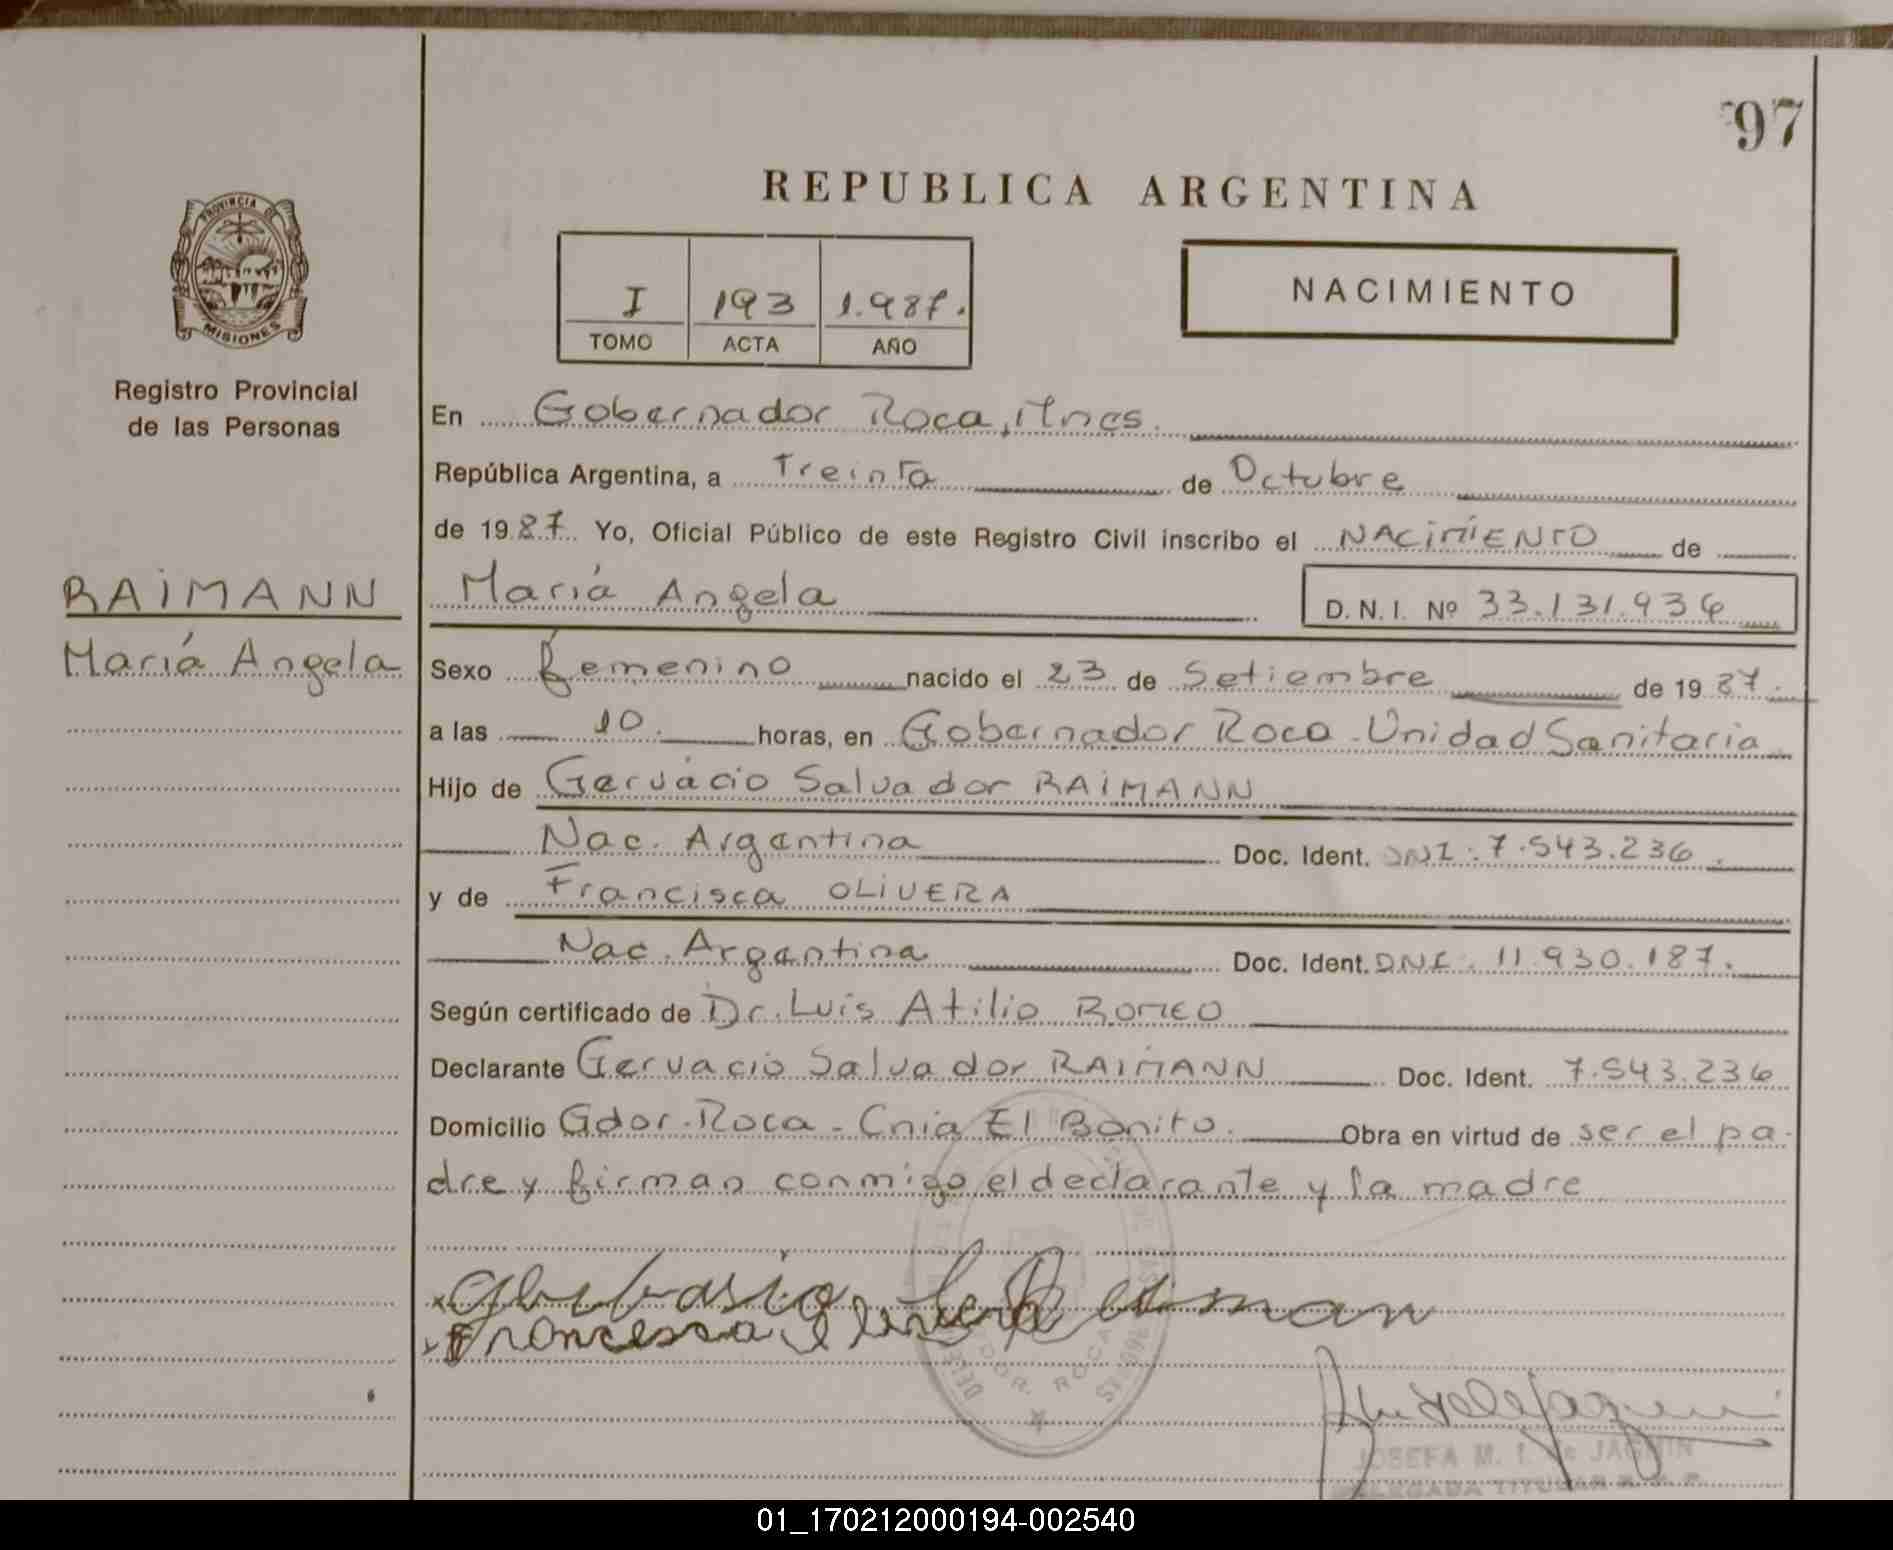 97
REPUBLICA ARGENTINA
PROVINCIA DE
MISIONES
Registro Provincial
de las Personas
I 193 1.987.
TOMO ACTA AÑO
NACIMIENTO
En Gobernador Roca, Mnes.
República Argentina, a Treinta de Octubre
de 1987. Yo, Oficial Público de este Registro Civil inscribo el NACIMIENTO de
RAIMANN
María Angela
Mariá Angela D.N.I. Nº 33.131.936
Sexo femenino nacido el 23 de Setiembre de 1987.
a las 10. horas, en Gobernador Roca - Unidad Sanitaria
Hijo de Gervacio Salvador RAIMANN
Nac. Argentina Doc. Ident. DNI: 7.543.236.
y de Francisca OLIVERA
Nac. Argentina Doc. Ident. DNI: 11.930.187.
Según certificado de Dr. Luis Atilio ROMEO
Declarante Gervacio Salvador RAIMANN Doc. Ident. 7.543.236
Domicilio Gdor. Roca - Cnia El Bonito. Obra en virtud de ser el pa-
dre y firman conmigo el declarante y la madre
GDOR. ROCA
JOSEFA M. I. de JAGMIN
DELEGADA TITULAR
01_170212000194-002540